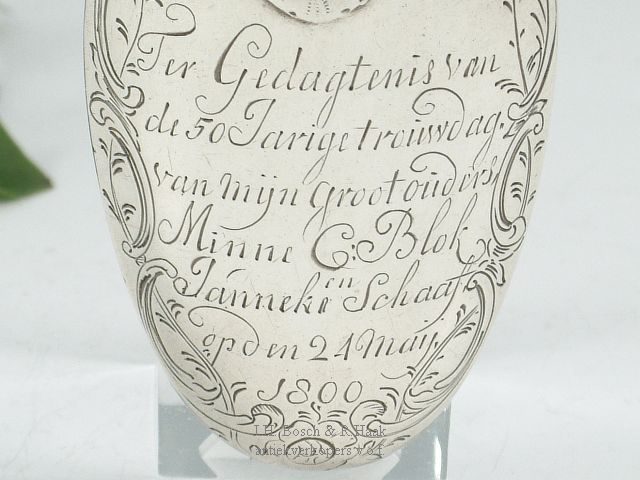 Ter Gedagtenis van
de 50 Jarige trouwdag.
van mijn grootouders
Minne C: Blok
en
Janneke Schaaft
op den 24 Maij
1800
J.H. Bosch & R. Haak
antiekverkopers v.o.f.